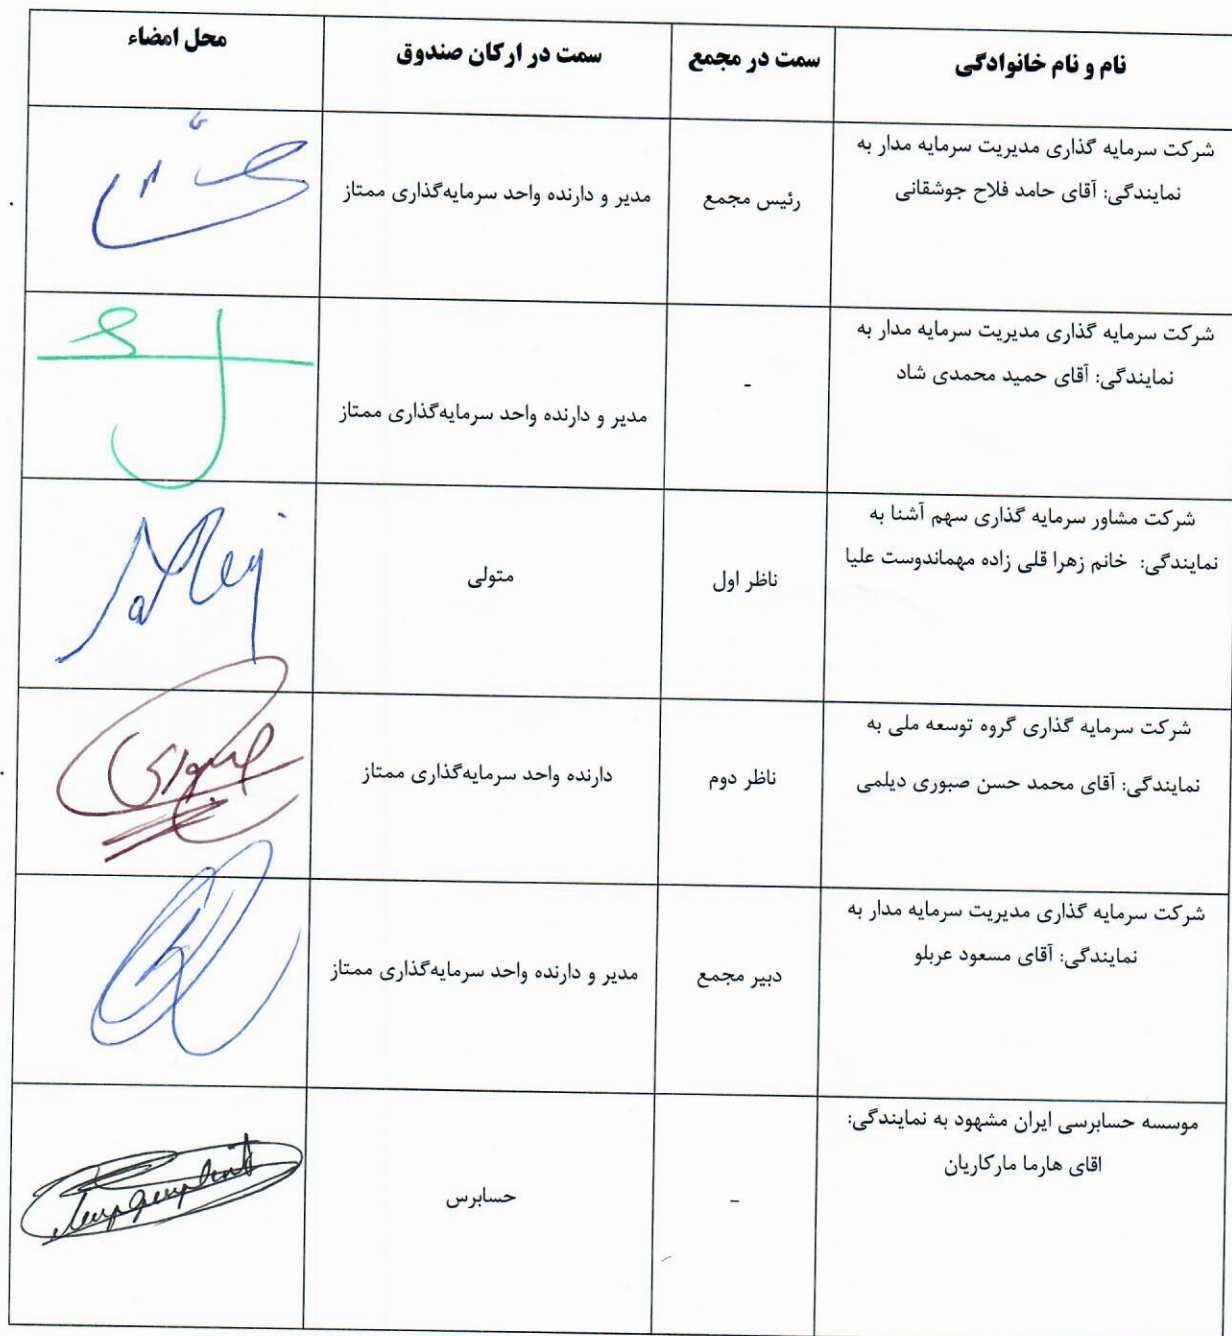 نام و نام خانوادگی
سمت در مجمع
سمت در ارکان صندوق
محل امضاء
شرکت سرمایه گذاری مدیریت سرمایه مدار به
نمایندگی: آقای حامد فلاح جوشقانی
رئیس مجمع
مدیر و دارنده واحد سرمایه‌گذاری ممتاز
شرکت سرمایه گذاری مدیریت سرمایه مدار به
نمایندگی: آقای حمید محمدی شاد
-
مدیر و دارنده واحد سرمایه‌گذاری ممتاز
شرکت مشاور سرمایه گذاری سهم آشنا به
نمایندگی: خانم زهرا قلی زاده مهماندوست علیا
ناظر اول
متولی
شرکت سرمایه گذاری گروه توسعه ملی به
نمایندگی: آقای محمد حسن صبوری دیلمی
ناظر دوم
دارنده واحد سرمایه‌گذاری ممتاز
شرکت سرمایه گذاری مدیریت سرمایه مدار به
نمایندگی: آقای مسعود عربلو
دبیر مجمع
مدیر و دارنده واحد سرمایه‌گذاری ممتاز
موسسه حسابرسی ایران مشهود به نمایندگی:
اقای هارما مارکاریان
-
حسابرس